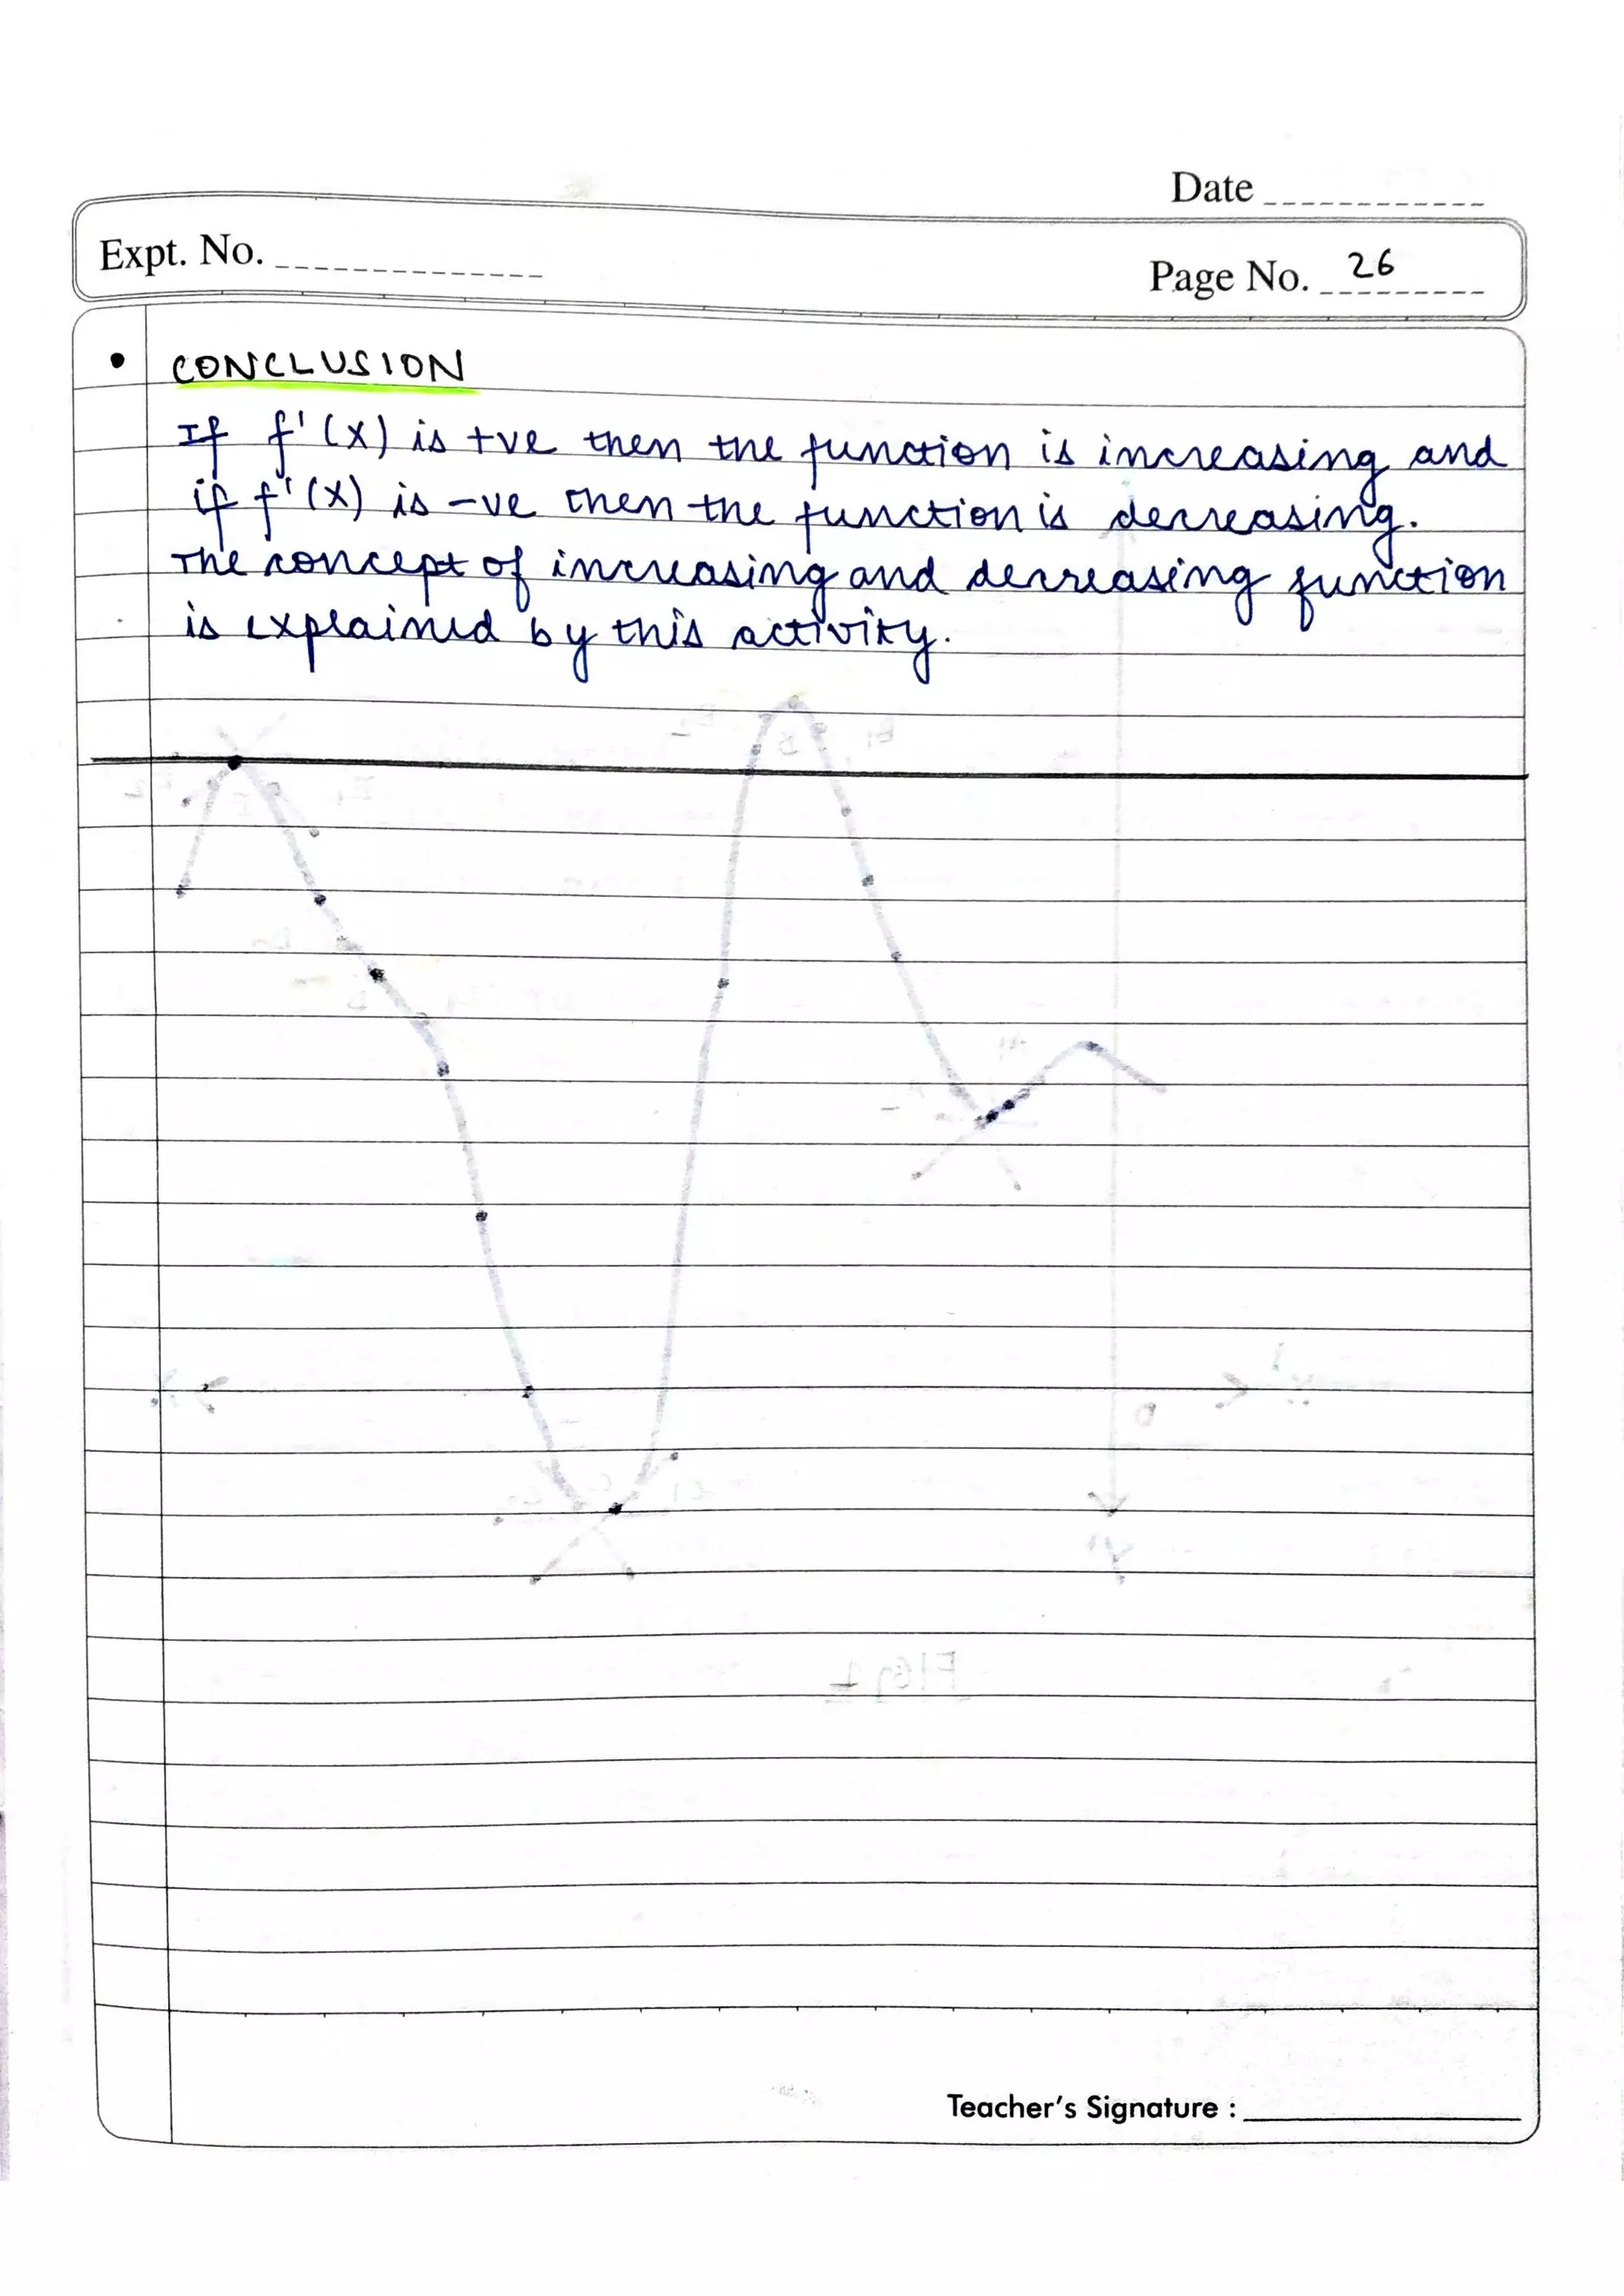 Date
Expt. No.
Page No. 26
• CONCLUSION
If f'(x) is +ve then the function is increasing and
if f'(x) is -ve then the function is decreasing.
The concept of increasing and decreasing function
is explained by this activity.
Teacher's Signature :